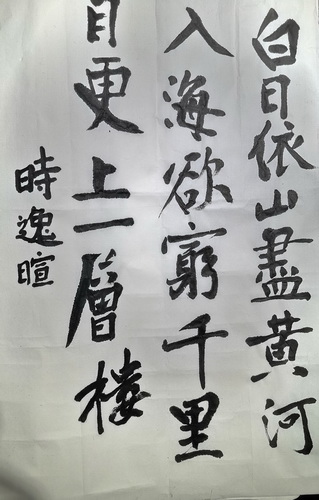 白日依山盡黄河
入海欲窮千里
目更上一層樓
時逸暄